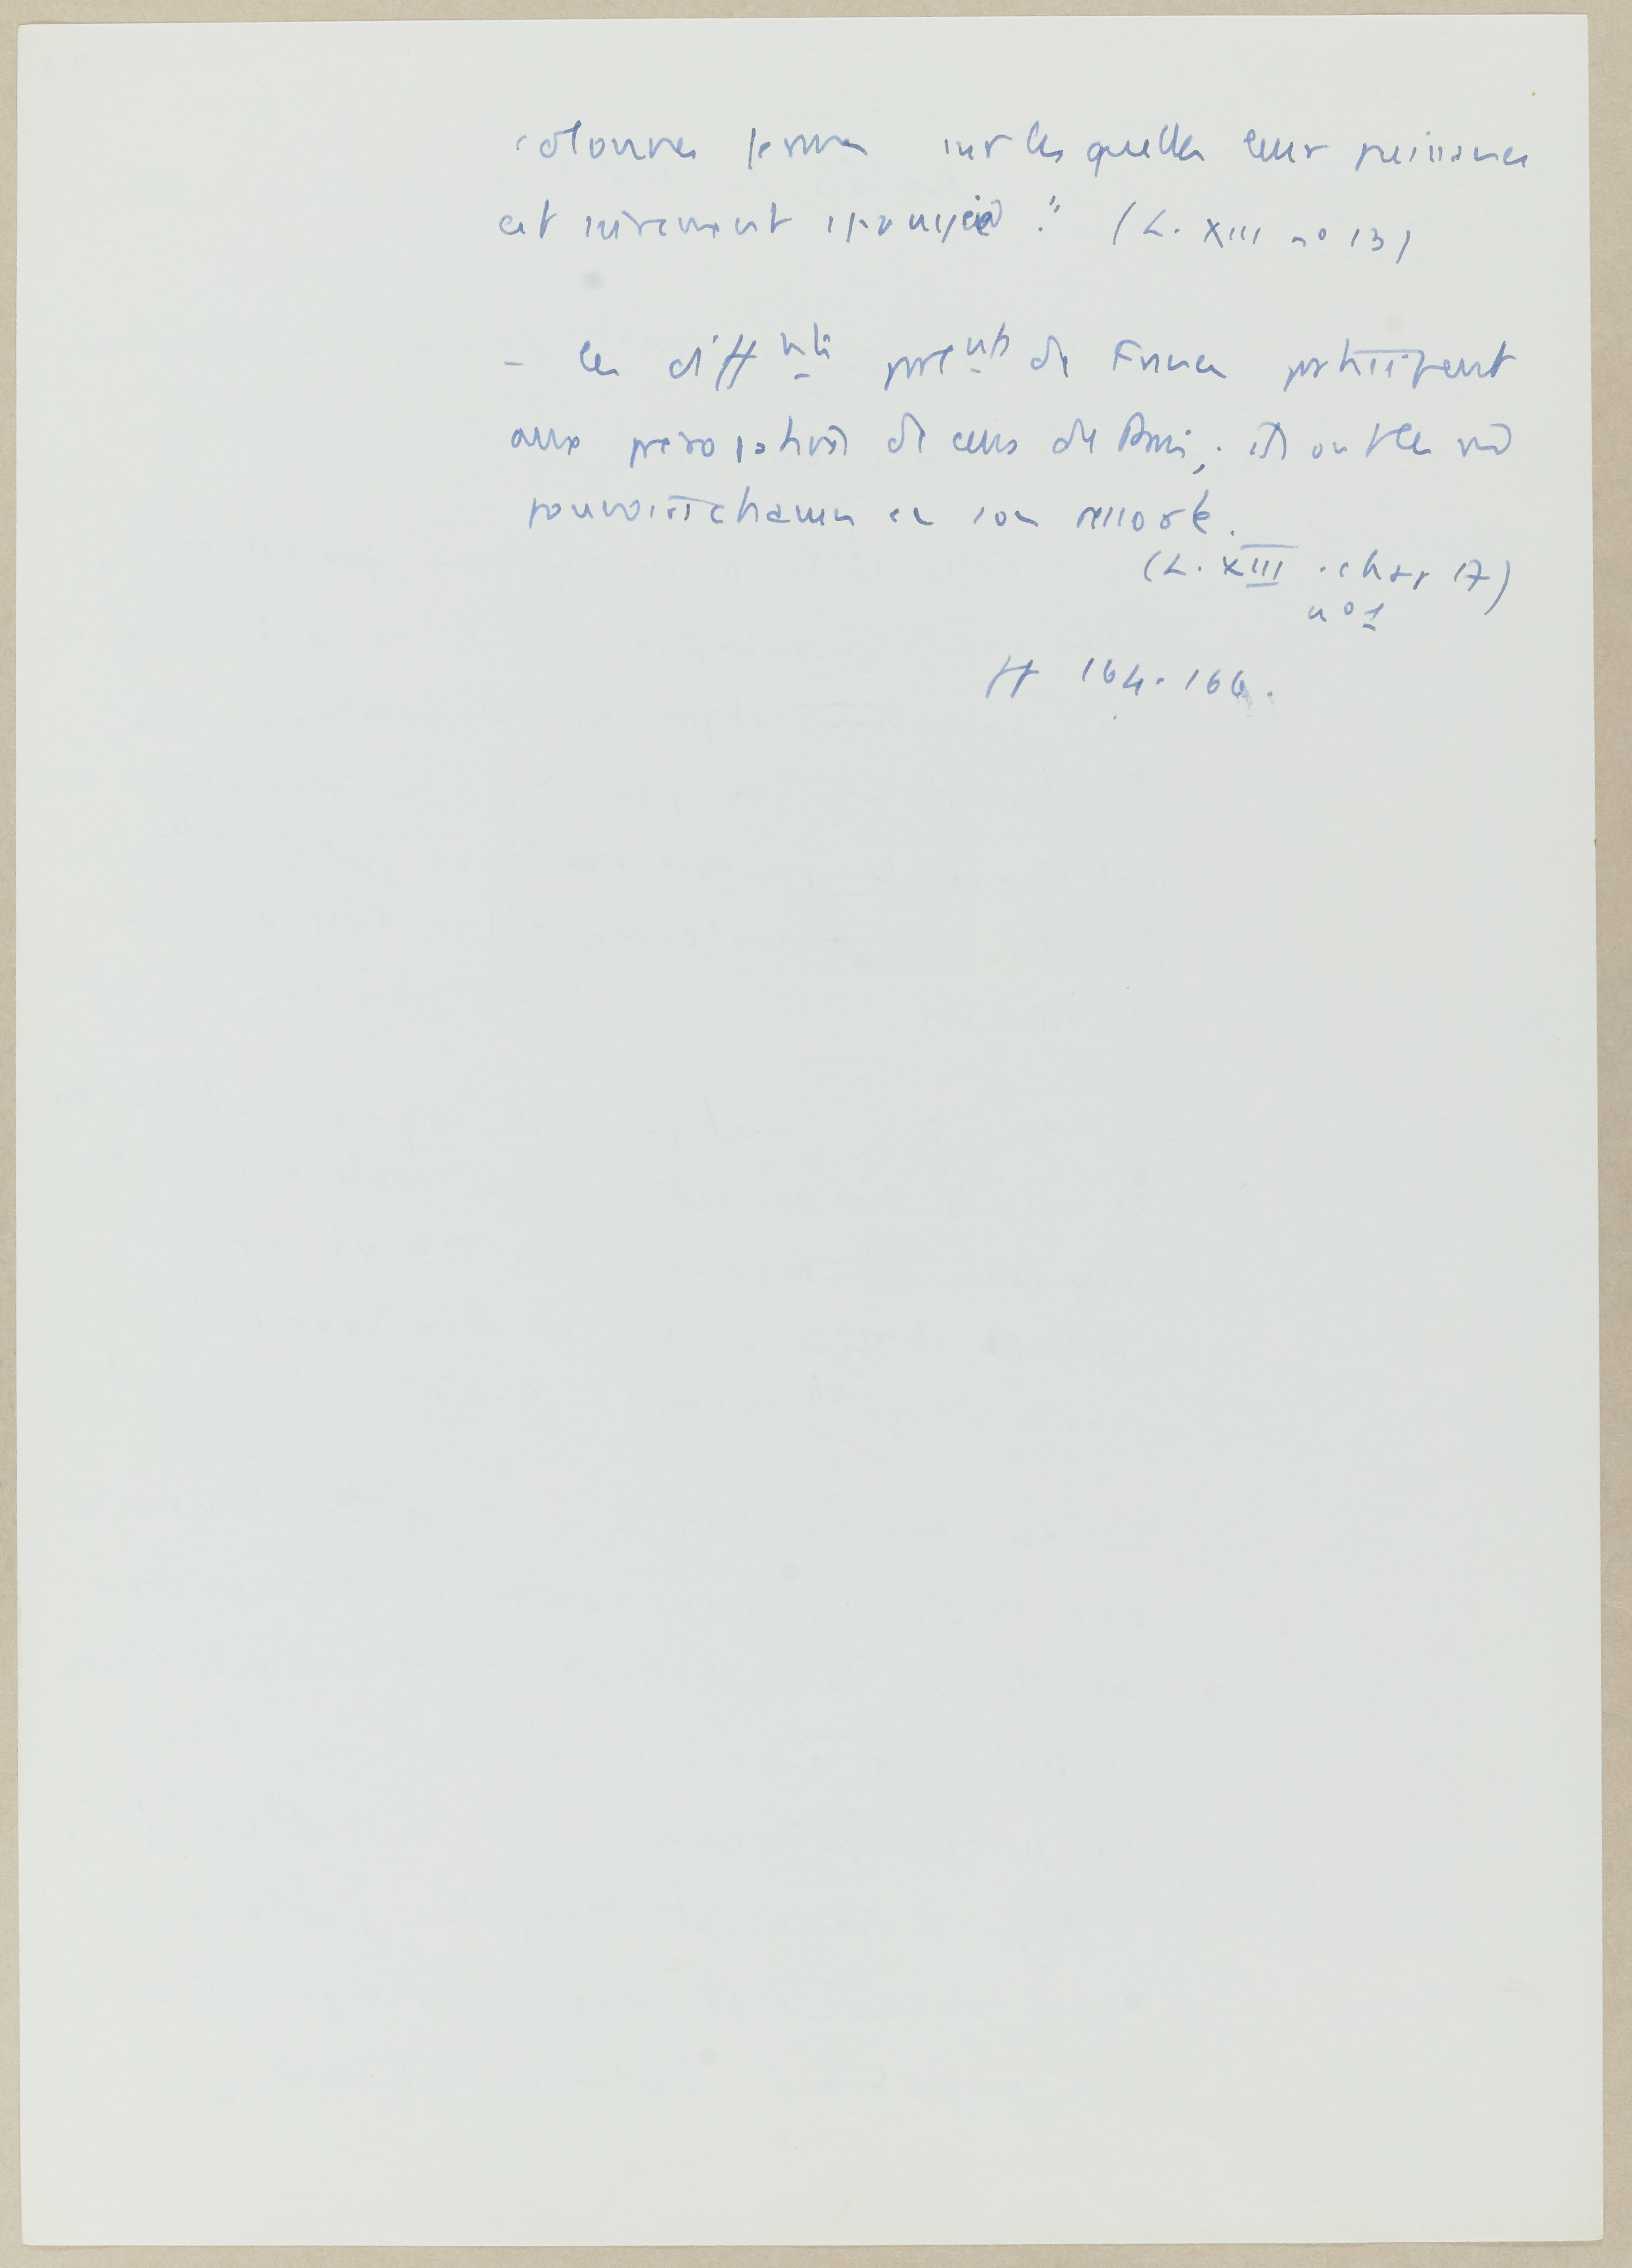 colonnes fermes sur lesquelles leur puissance
est sûrement appuyée." (L. XIII n° 13)
- les diffnts parlnts de France participent
aux prérogatives de ceux de Paris; ils ont les mê
pouvoirs chacun en son ressort.
(L. XIII. chap 17)
n° 1
ff 164-166.